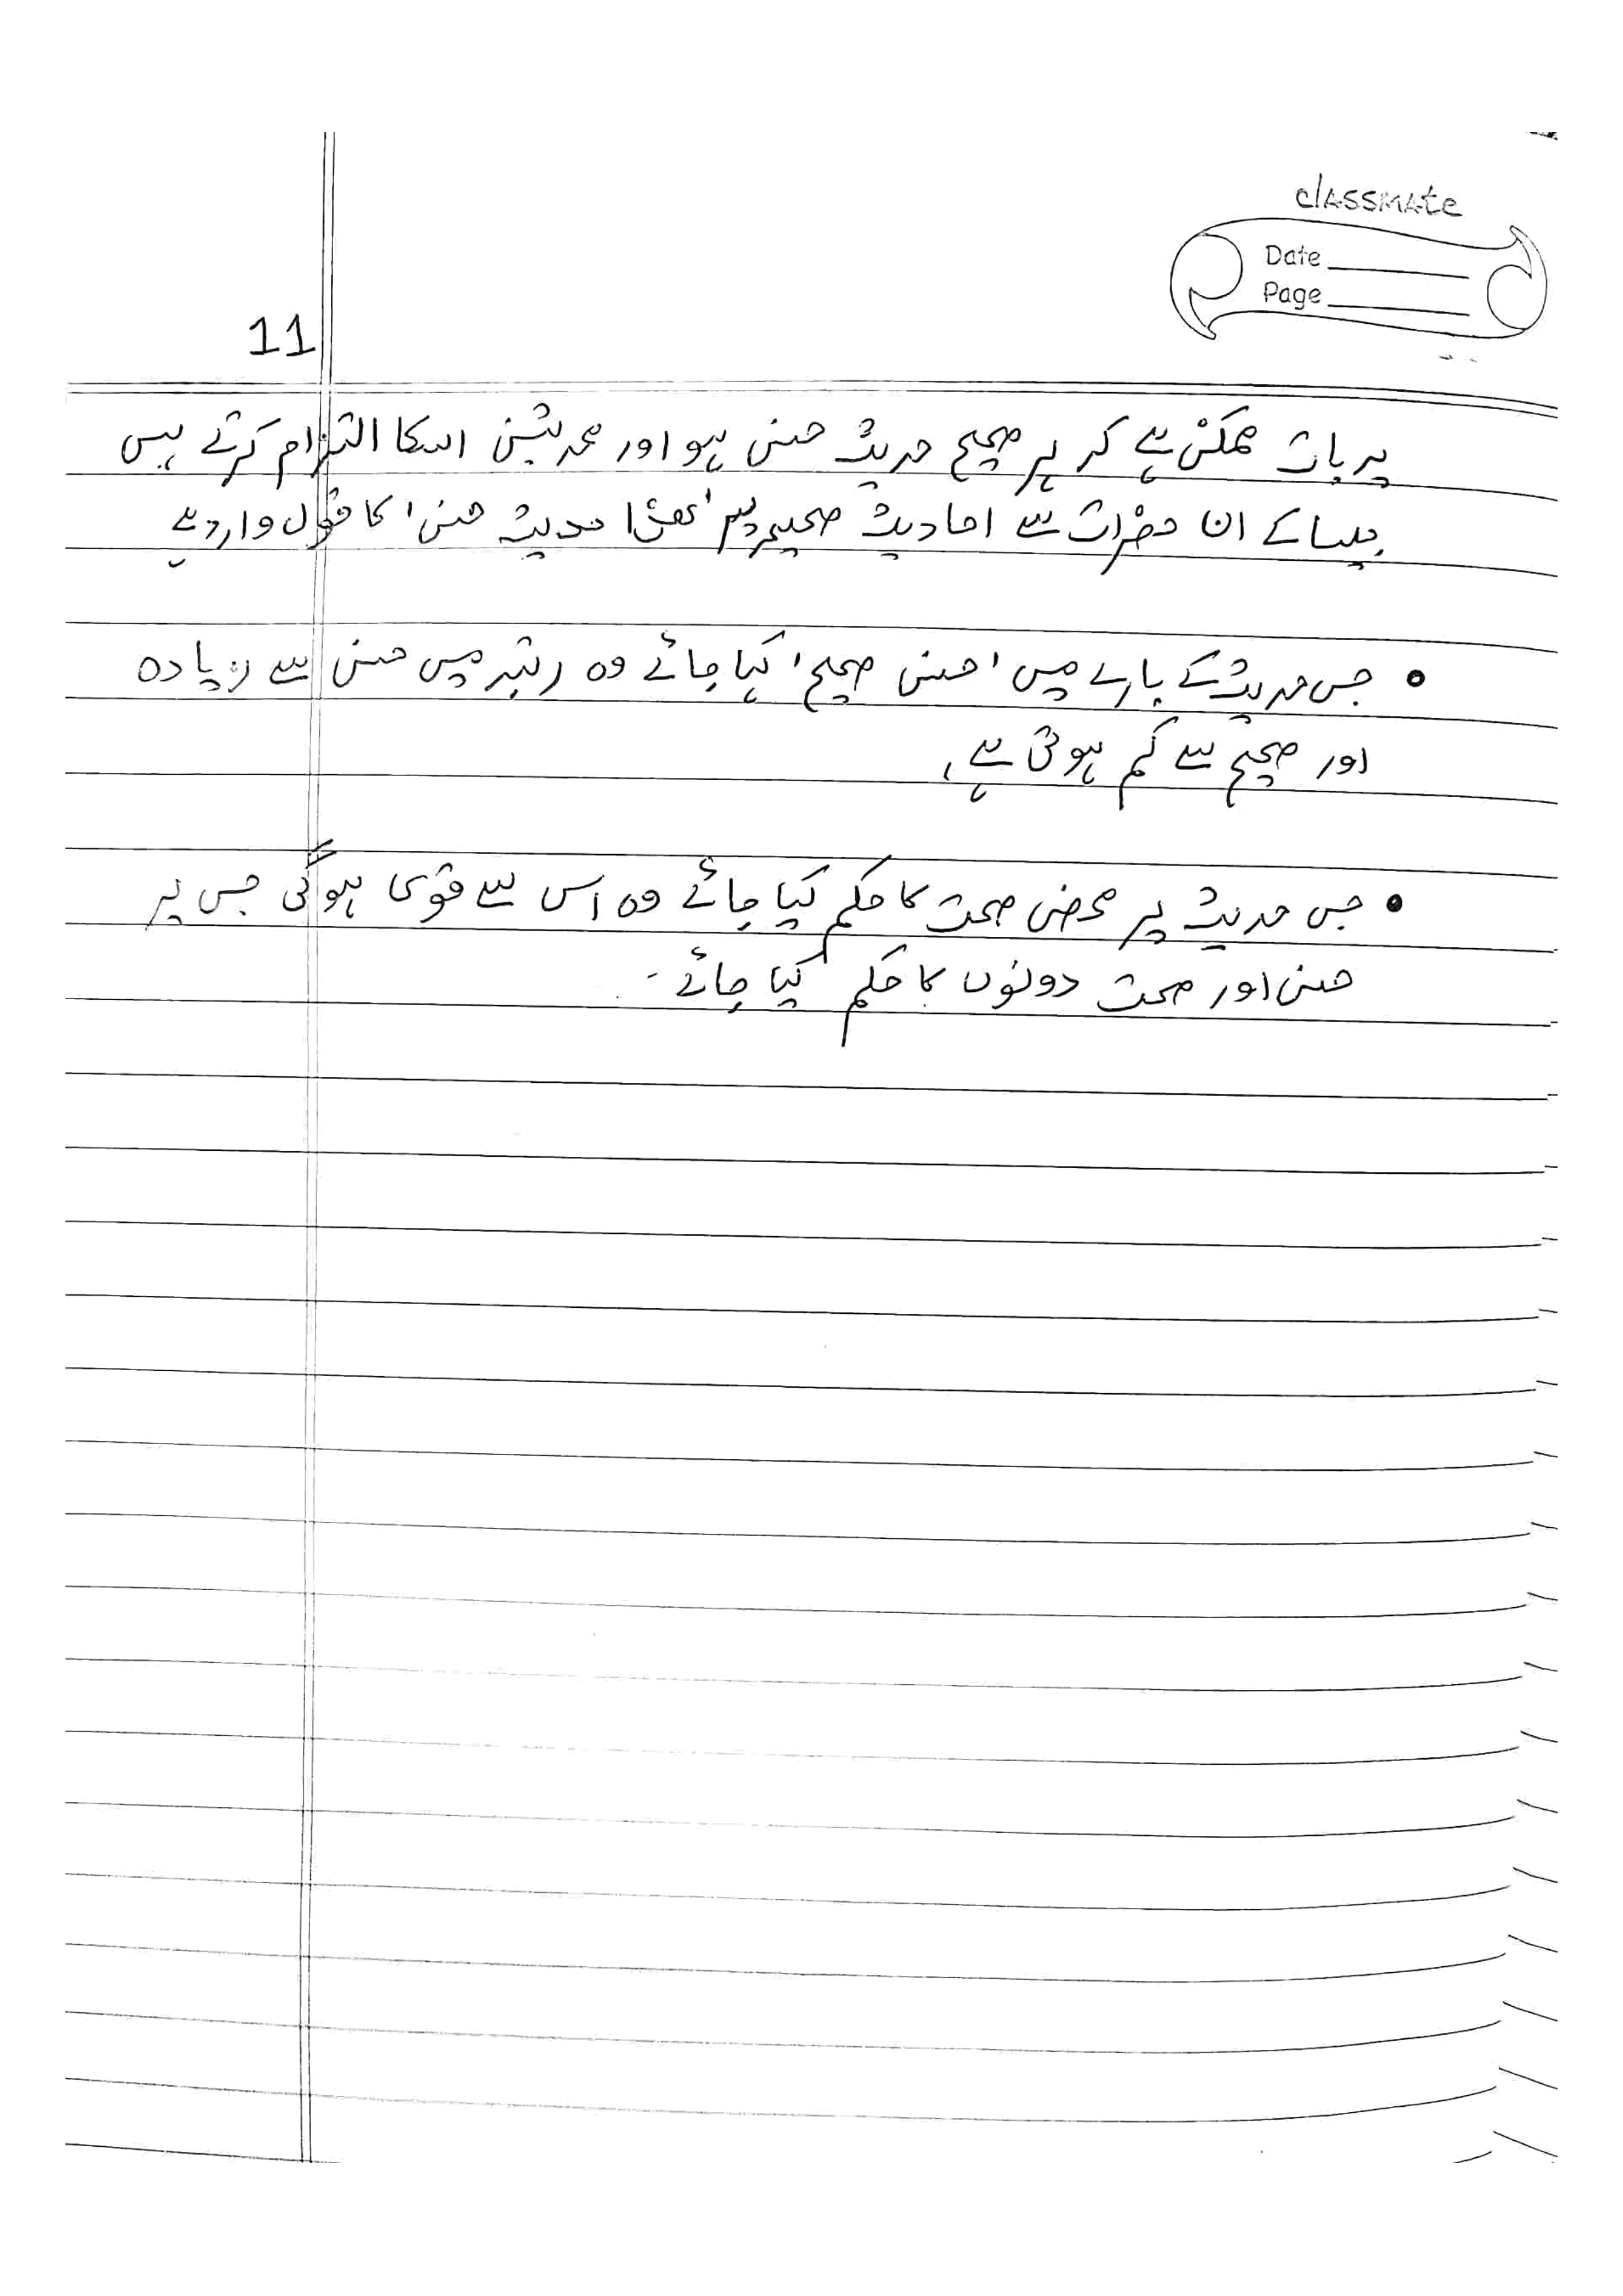 classmate
Date
Page
11
یہ بات ممکن ہے کہ ہر صحیح حدیث حسن ہو اور محدثین اسکا التزام کرتے ہیں
جیسا کے ان حضرات سے احادیث صحیحہ پر 'ھذا حدیث حسن' کا قول وارد ہے
• جس حدیث کے بارے میں 'حسن صحیح' کہا جائے وہ رتبہ میں حسن سے زیادہ
اور صحیح سے کم ہوتی ہے،
• جس حدیث پر محض صحت کا حکم کیا جائے وہ اس سے قوی ہوگی جس پر
حسن اور صحت دونوں کا حکم کیا جائے۔